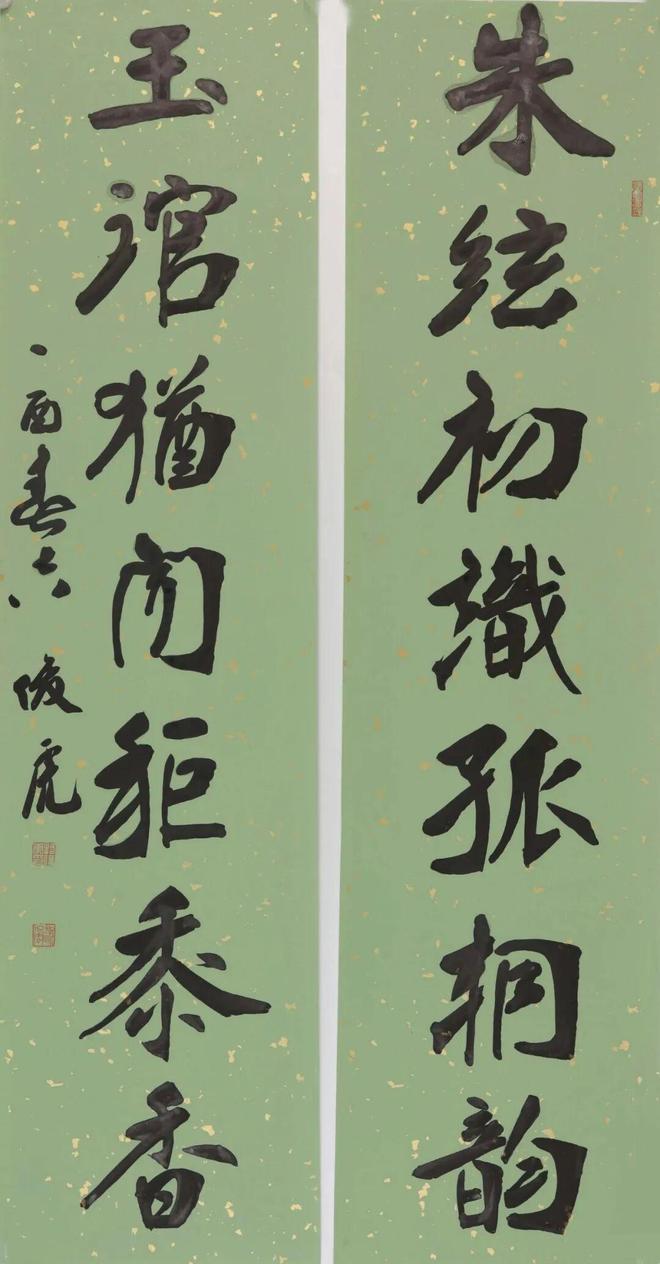 朱絃初識孤桐韻
玉琯猶聞秬黍香
酉春
俊虎